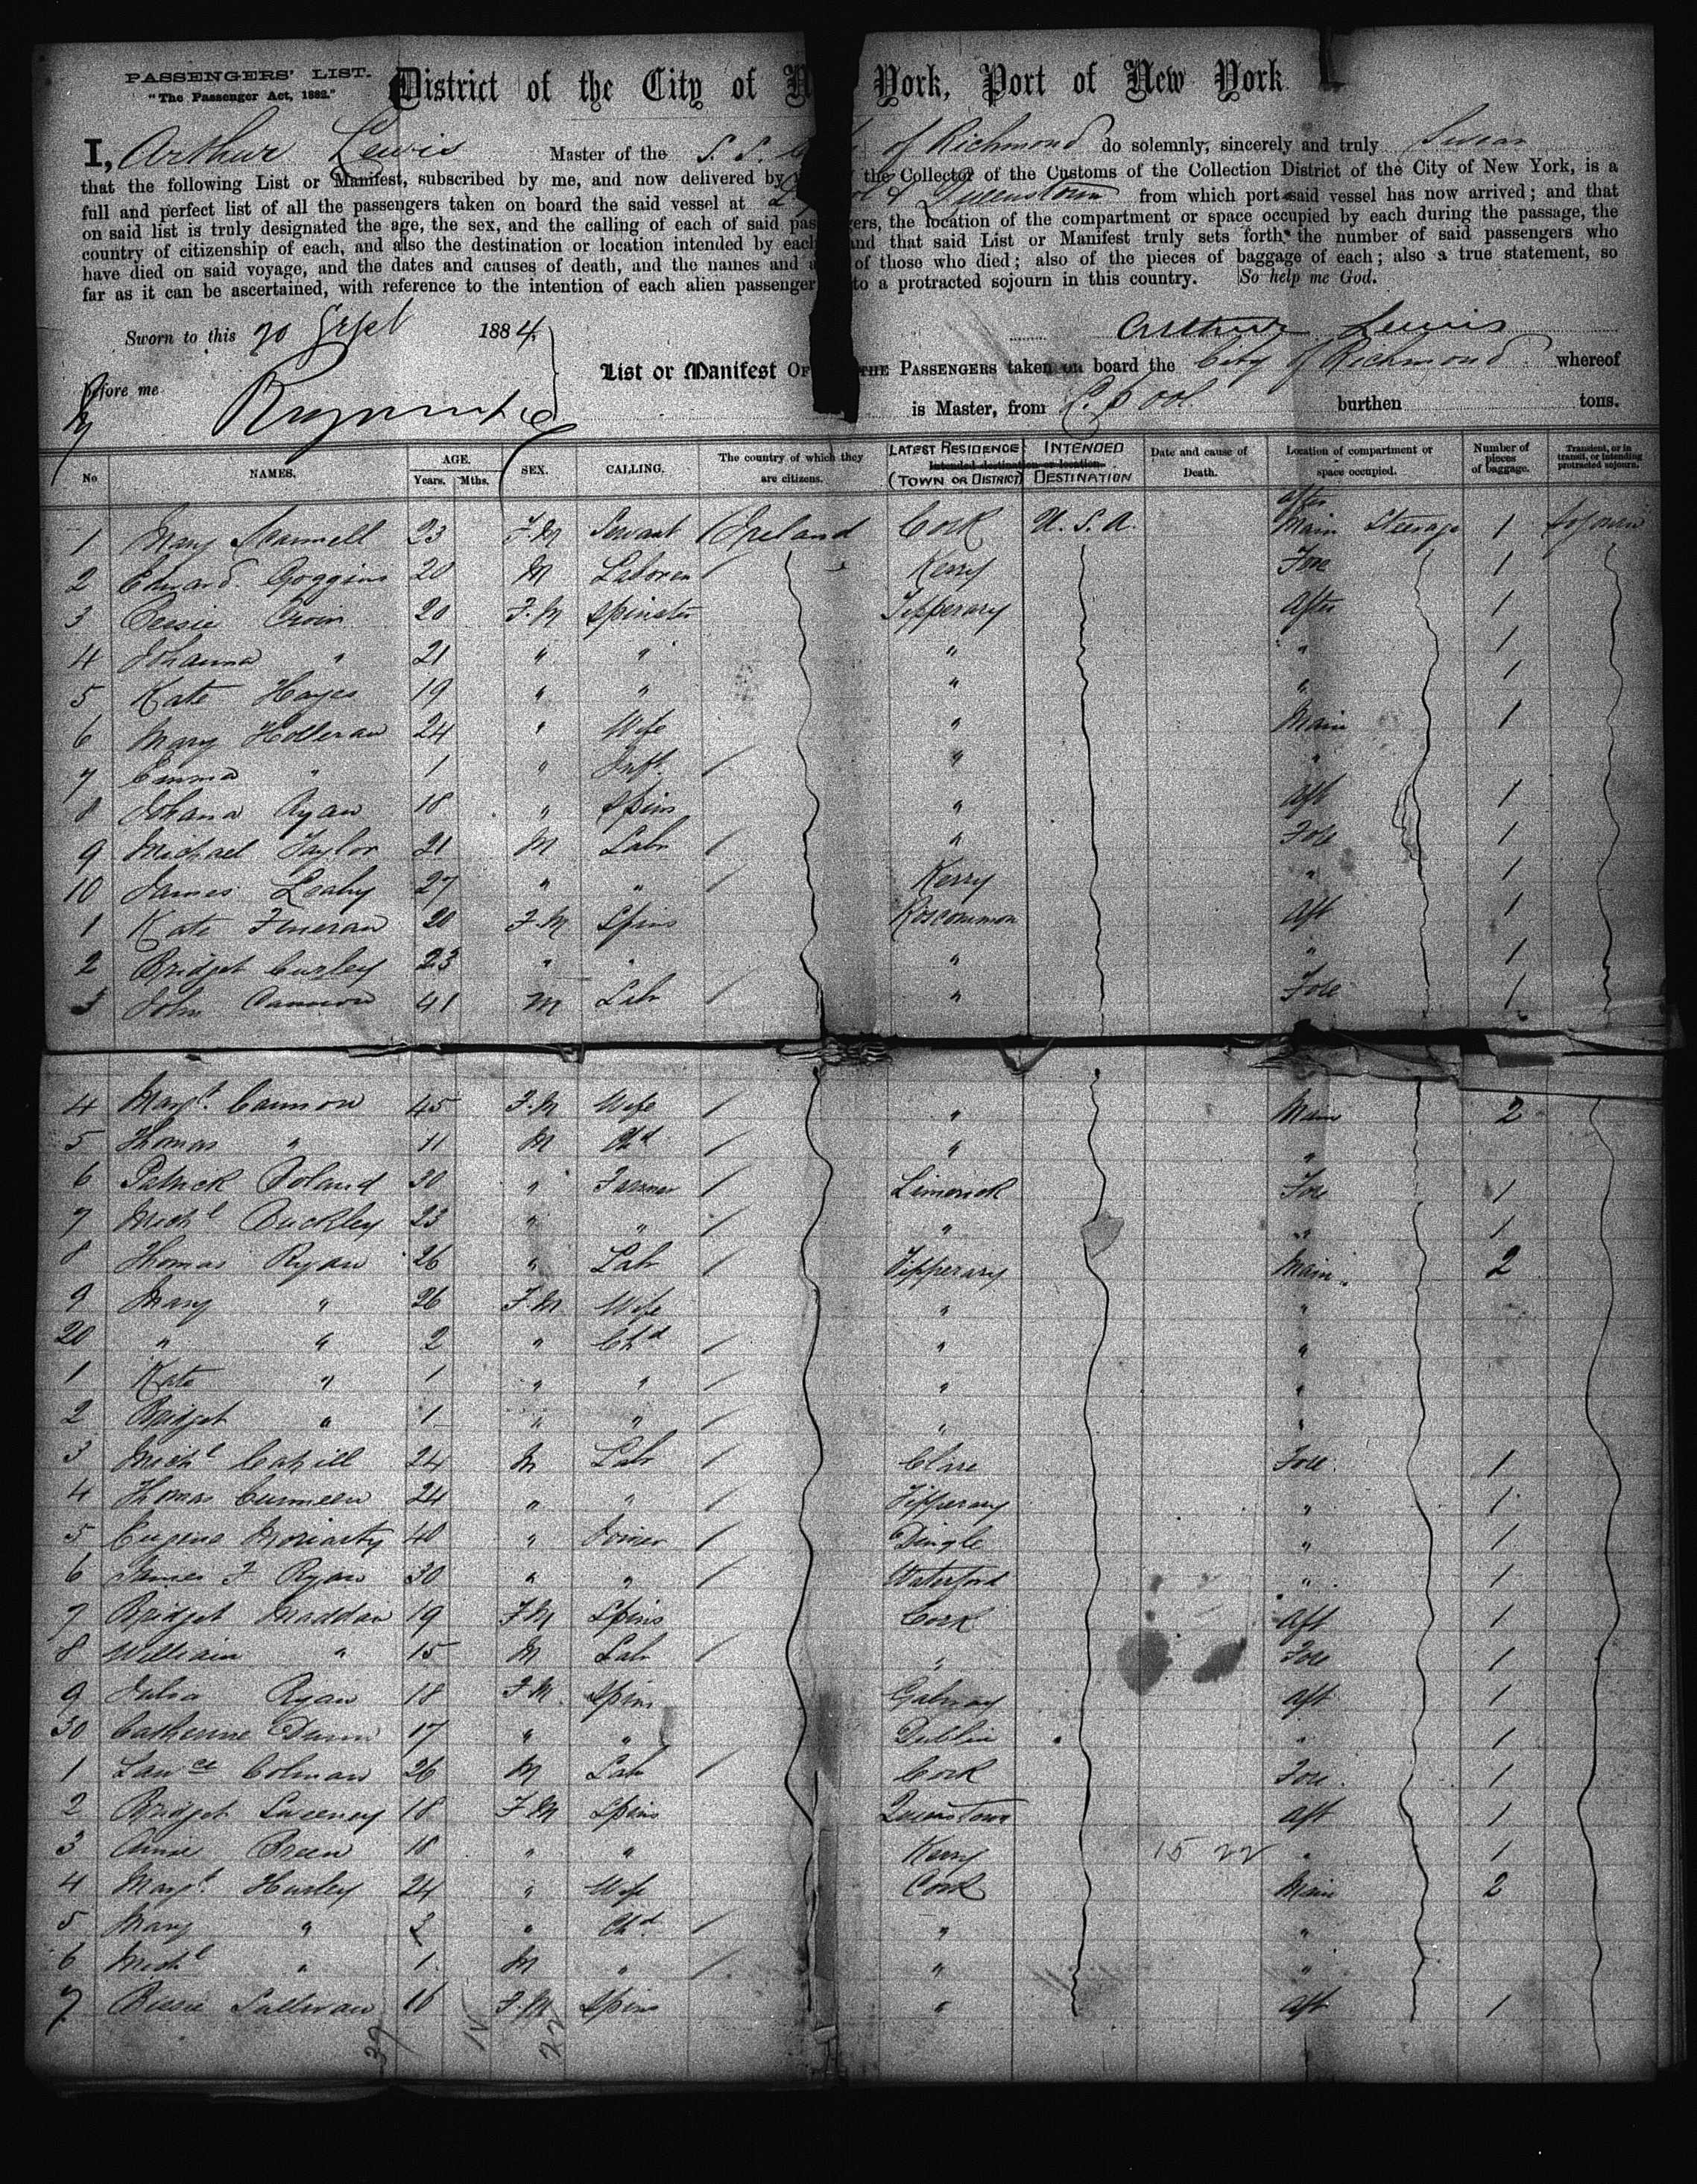 PASSENGERS' LIST.
"The Passenger Act, 1882."
District of the City of N York, Port of New York
I, Arthur Lewis Master of the S. S. of Richmond do solemnly, sincerely and truly Swear
that the following List or Manifest, subscribed by me, and now delivered by the Collector of the Customs of the Collection District of the City of New York, is a
full and perfect list of all the passengers taken on board the said vessel at L ol & Queenstown from which port said vessel has now arrived; and that
on said list is truly designated the age, the sex, and the calling of each of said pas gers, the location of the compartment or space occupied by each during the passage, the
country of citizenship of each, and also the destination or location intended by each and that said List or Manifest truly sets forth the number of said passengers who
have died on said voyage, and the dates and causes of death, and the names and a of those who died; also of the pieces of baggage of each; also a true statement, so
far as it can be ascertained, with reference to the intention of each alien passenger to a protracted sojourn in this country. So help me God.
Sworn to this 20 Sept 1884 Arthur Lewis
before me
List or Manifest OF THE PASSENGERS taken on board the City of Richmond whereof
is Master, from L.pool burthen tons.
No NAMES. AGE. Years. Mths. SEX. CALLING. The country of which they are citizens. LATEST RESIDENCE (TOWN OR DISTRICT) Intended destination or location. INTENDED DESTINATION Date and cause of Death. Location of compartment or space occupied. Number of pieces of baggage. Transient, or in transit, or intending protracted sojourn.
1 Mary Scannell 23 F.M Servant Ireland Cork U.S.A. After Main Steerage 1 Sojourn
2 Edward Goggins 20 M Laborer / Kerry Fore 1
3 Bessie 20 F.M Spinster Tipperary After 1
4 Johanna " 21 " " " " 1
5 Kate Hayes 19 " " " " 1
6 Mary Holleran 24 " Wife " Main 1
7 Emma " 1 " Inft. / " "
8 Johana Ryan 18 " Spins " Aft 1
9 Michael Taylor 21 M Labr / " Fore 1
10 James Leahy 27 " " / Kerry " 1
1 Kate Fineran 20 F.M Spins Roscommon Aft 1
2 Bridget Curley 23 " " " " 1
3 John Cannon 41 M Labr / " Fore 1
4 Margt. Cannon 45 F.M Wife / " Main 2
5 Thomas " 11 M Chd / " "
6 Patrick Boland 30 " Farmer / Limerick Fore 1
7 Michl Buckley 23 " " / " " 1
8 Thomas Ryan 26 " Labr / Tipperary Main 2
9 Mary " 26 F.M Wife " "
20 " " 2 " Chd / " "
1 Kate " 1 " " / " "
2 Bridget " 1 " " / " "
3 Michl Cahill 24 M Labr / Clare Fore 1
4 Thomas Cunneen 24 " " / Tipperary " 1
5 Eugene Moriarty 40 " Joiner / Dingle " 1
6 James F Ryan 30 " " / Waterford " 1
7 Bridget Madden 19 F.M Spins Cork Aft 1
8 William " 15 M Labr / " Fore 1
9 Julia Ryan 18 F.M Spins Galway Aft 1
30 Catherine Dunn 17 " " Dublin " 1
1 Lawce Colman 26 M Labr / Cork Fore 1
2 Bridget Sweeney 18 F.M Spins Queenstown Aft 1
3 Annie Breen 18 " " Kerry 15 22 " 1
4 Margt. Hurley 24 " Wife Cork Main 2
5 Mary " " Chd / " "
6 Michl " 1 M " / " "
7 Bessie Sullivan 16 F.M Spins " Aft 1
37 15 22